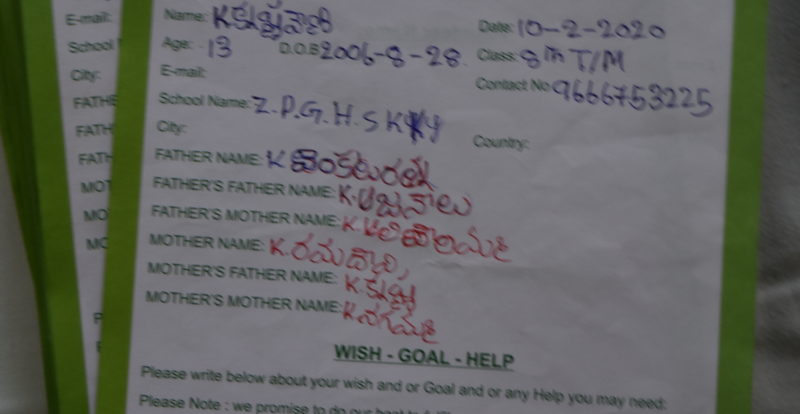 E-mail: Name: K కృష్ణవేణి Date: 10-2-2020
School Age: 13 D.O.B 2006-8-28. Class: 8th T/M
City: E-mail: Contact No 9666753225
FATHE School Name: Z.P.G.H.S
FATH City: Country:
FATH FATHER NAME: K వెంకటరత్న
MOT FATHER'S FATHER NAME: K.
MO FATHER'S MOTHER NAME: K.
MC MOTHER NAME: K.
MOTHER'S FATHER NAME: K. కృష్ణ
MOTHER'S MOTHER NAME: K. నాగమ్మ
WISH - GOAL - HELP
Please write below about your wish and or Goal and or any Help you may need:
Please Note : we promise to do our best to